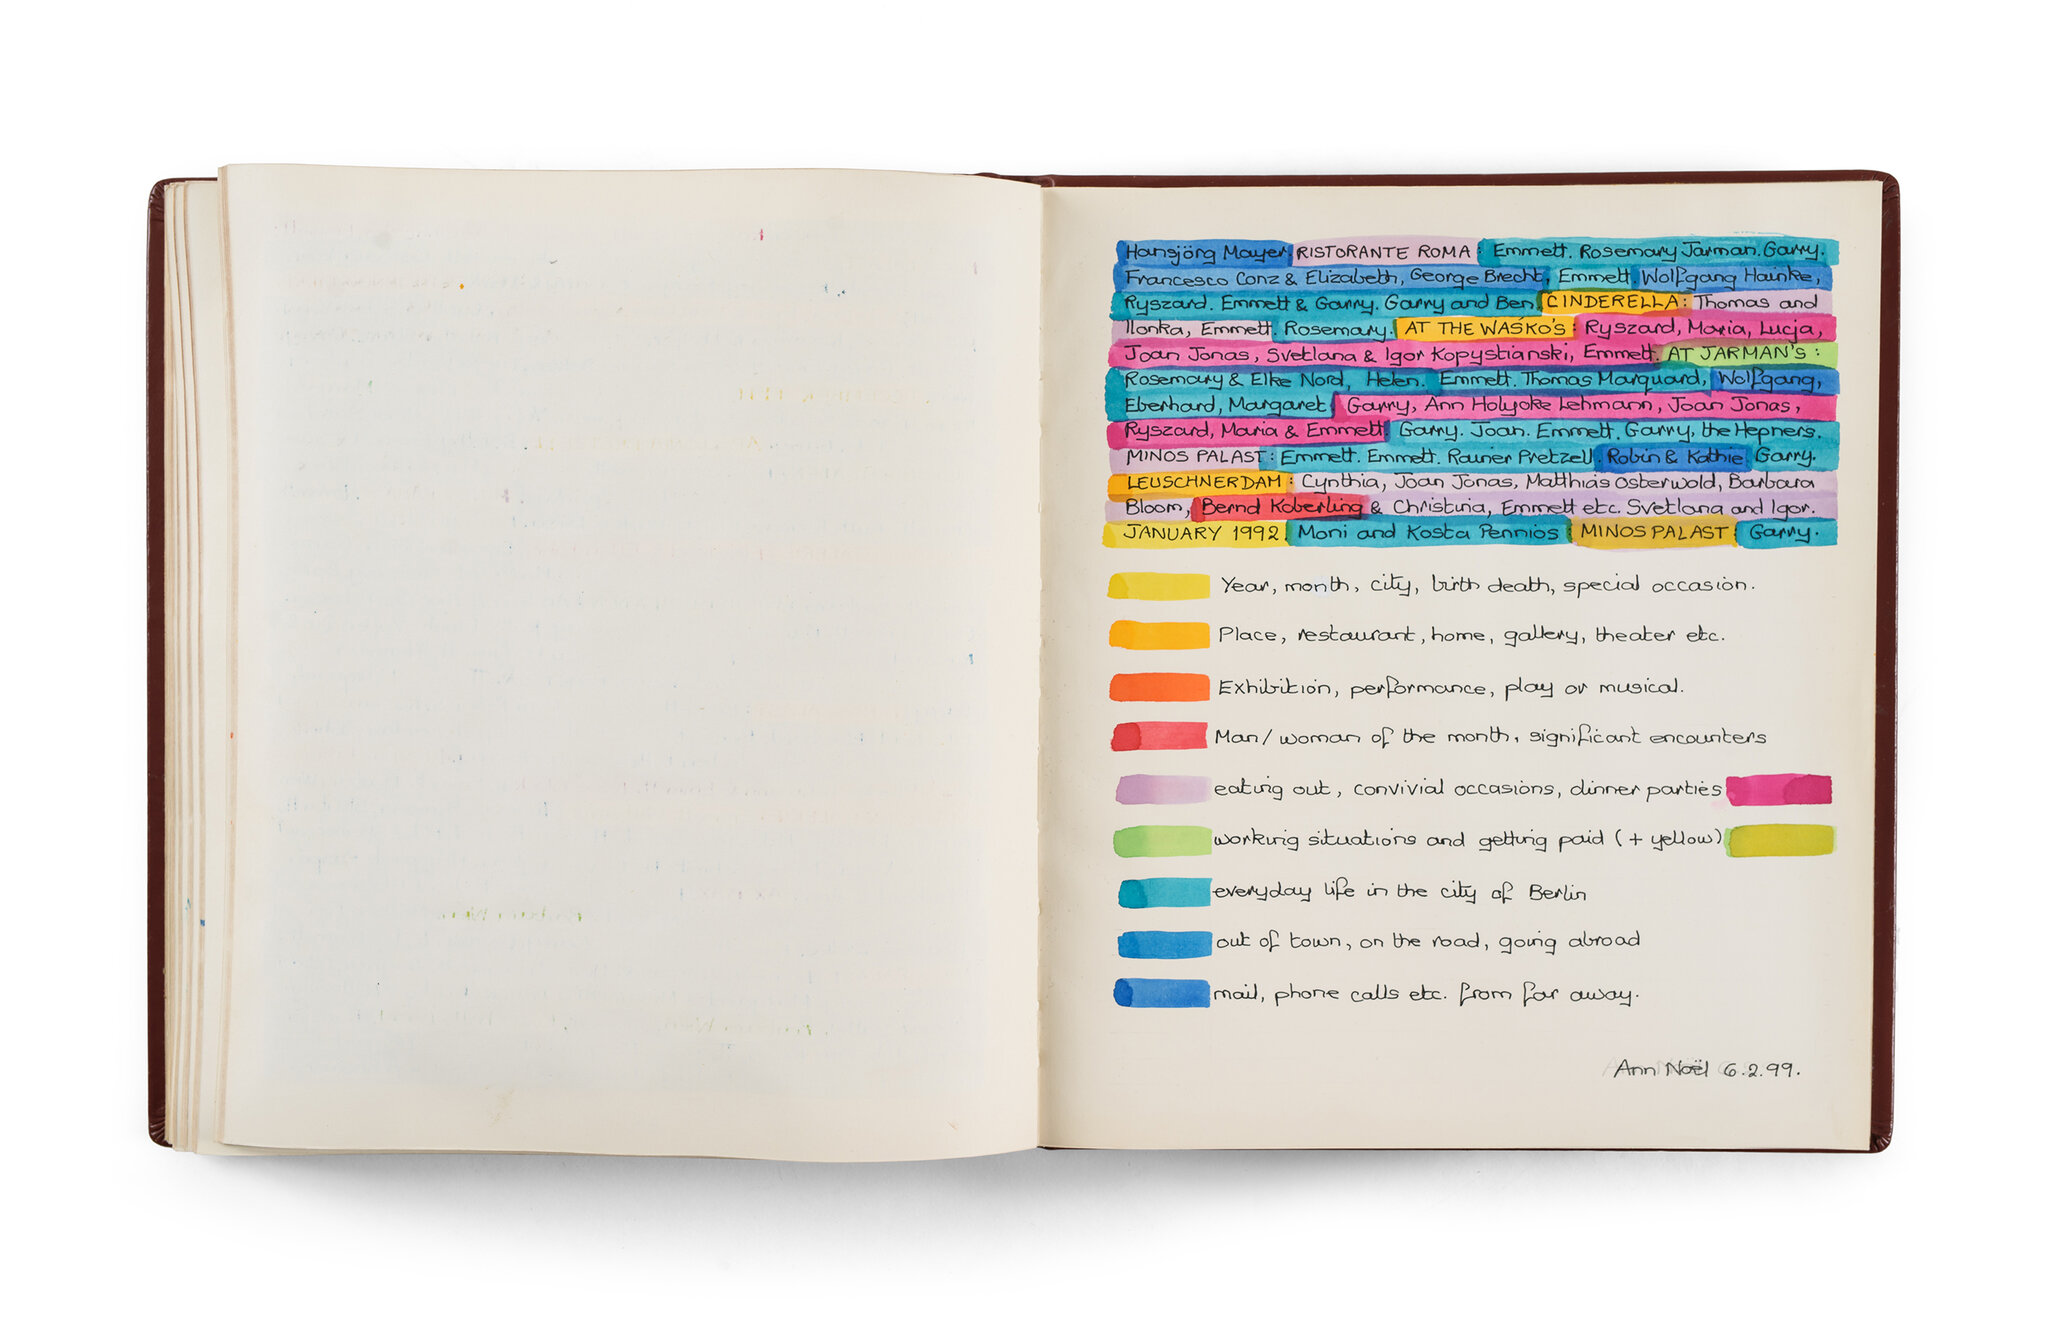 Hansjörg Mayer. RISTORANTE ROMA: Emmett. Rosemary Jarman. Garry.
Francesco Conz & Elizabeth, George Brecht, Emmett. Wolfgang Hainke,
Ryszard. Emmett & Garry. Garry and Ben. CINDERELLA: Thomas and
Ilonka, Emmett. Rosemary. AT THE WAŚKO'S: Ryszard, Maria, Lucja,
Joan Jonas, Svetlana & Igor Kopystianski, Emmett. AT JARMAN'S:
Rosemary & Elke Nord, Helen. Emmett. Thomas Marquard, Wolfgang,
Eberhard, Margaret. Garry, Ann Holyoke Lehmann, Joan Jonas,
Ryszard, Maria & Emmett. Garry. Joan. Emmett. Garry, the Hepners.
MINOS PALAST: Emmett. Emmett. Rainer Pretzell. Robin & Kathie. Garry.
LEUSCHNERDAM: Cynthia, Joan Jonas, Matthias Osterwold, Barbara
Bloom, Bernd Koberling & Christina, Emmett etc. Svetlana and Igor.
JANUARY 1992. Moni and Kosta Pennios: MINOS PALAST: Garry.
Year, month, city, birth death, special occasion.
Place, restaurant, home, gallery, theater etc.
Exhibition, performance, play or musical.
Man/woman of the month, significant encounters
eating out, convivial occasions, dinner parties
working situations and getting paid (+ yellow)
everyday life in the city of Berlin
out of town, on the road, going abroad
mail, phone calls etc. from far away.
Ann Noël 6.2.99.